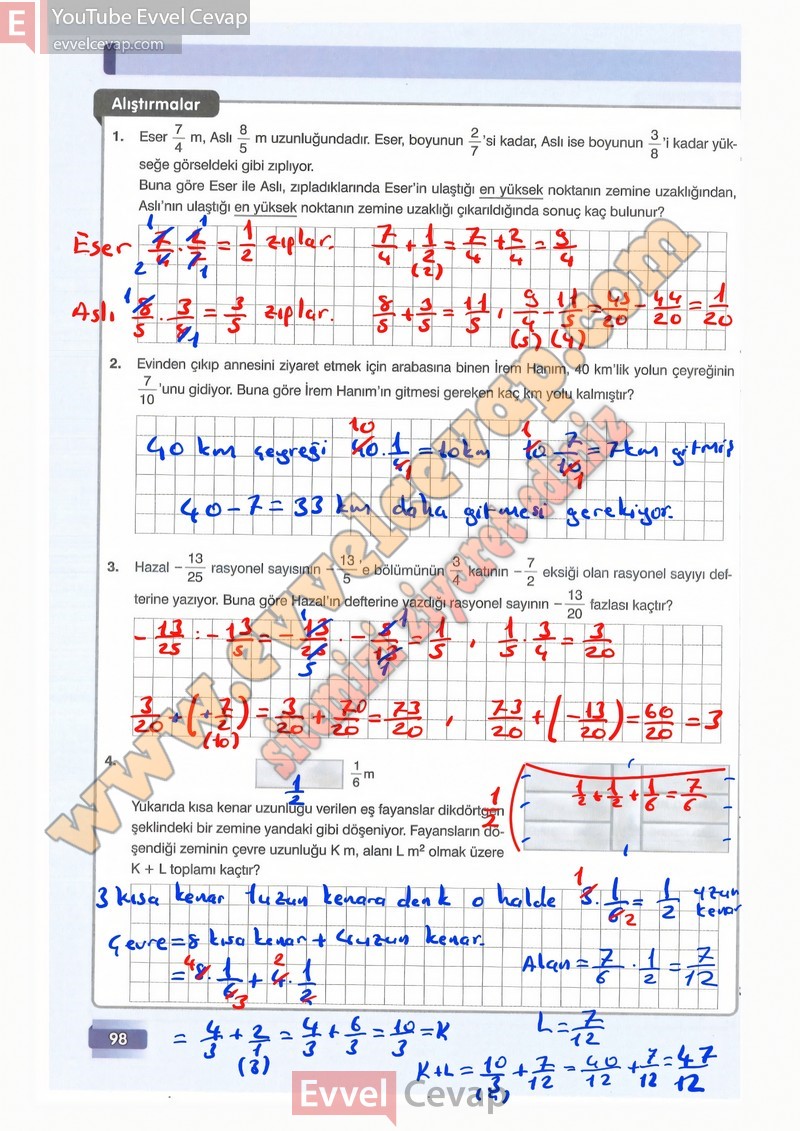 YouTube Evvel Cevap
evvelcevap.com
Alıştırmalar
1. Eser 7/4 m, Aslı 8/5 m uzunluğundadır. Eser, boyunun 2/7 'si kadar, Aslı ise boyunun 3/8 'i kadar yük-
seğe görseldeki gibi zıplıyor.
Buna göre Eser ile Aslı, zıpladıklarında Eser'in ulaştığı en yüksek noktanın zemine uzaklığından,
Aslı'nın ulaştığı en yüksek noktanın zemine uzaklığı çıkarıldığında sonuç kaç bulunur?
Eser 7/4 . 2/7 = 1/2 zıplar. 7/4 + 1/2 = 7/4 + 2/4 = 9/4
(2)
Aslı 8/5 . 3/8 = 3/5 zıplar. 8/5 + 3/5 = 11/5 , 9/4 - 11/5 = 45/20 - 44/20 = 1/20
(5) (4)
2. Evinden çıkıp annesini ziyaret etmek için arabasına binen İrem Hanım, 40 km'lik yolun çeyreğinin
7/10 'unu gidiyor. Buna göre İrem Hanım'ın gitmesi gereken kaç km yolu kalmıştır?
40 km çeyreği 40 . 1/4 = 10km 10 . 7/10 = 7km gitmiş
40 - 7 = 33 km daha gitmesi gerekiyor.
3. Hazal -13/25 rasyonel sayısının -13/5 'e bölümünün 3/4 katının -7/2 eksiği olan rasyonel sayıyı def-
terine yazıyor. Buna göre Hazal'ın defterine yazdığı rasyonel sayının -13/20 fazlası kaçtır?
-13/25 : -13/5 = -13/25 . -5/13 = 1/5 , 1/5 . 3/4 = 3/20
3/20 + (+7/2) = 3/20 + 70/20 = 73/20 , 73/20 + (-13/20) = 60/20 = 3
(10)
4. 1/6 m
1/2
1/2 1/2 + 1/2 + 1/6 = 7/6
Yukarıda kısa kenar uzunluğu verilen eş fayanslar dikdörtgen
şeklindeki bir zemine yandaki gibi döşeniyor. Fayansların dö-
şendiği zeminin çevre uzunluğu K m, alanı L m² olmak üzere
K + L toplamı kaçtır?
3 kısa kenar 1 uzun kenara denk o halde 3 . 1/6 = 1/2 uzun kenar
Çevre = 8 kısa kenar + 4 uzun kenar.
= 8 . 1/6 + 4 . 1/2 Alan = 7/6 . 1/2 = 7/12
98
= 4/3 + 2/1 = 4/3 + 6/3 = 10/3 = K L = 7/12
(3)
K+L = 10/3 + 7/12 = 40/12 + 7/12 = 47/12
(4)
Evvel Cevap
www.evvelcevap.com
sitemizi ziyaret ediniz